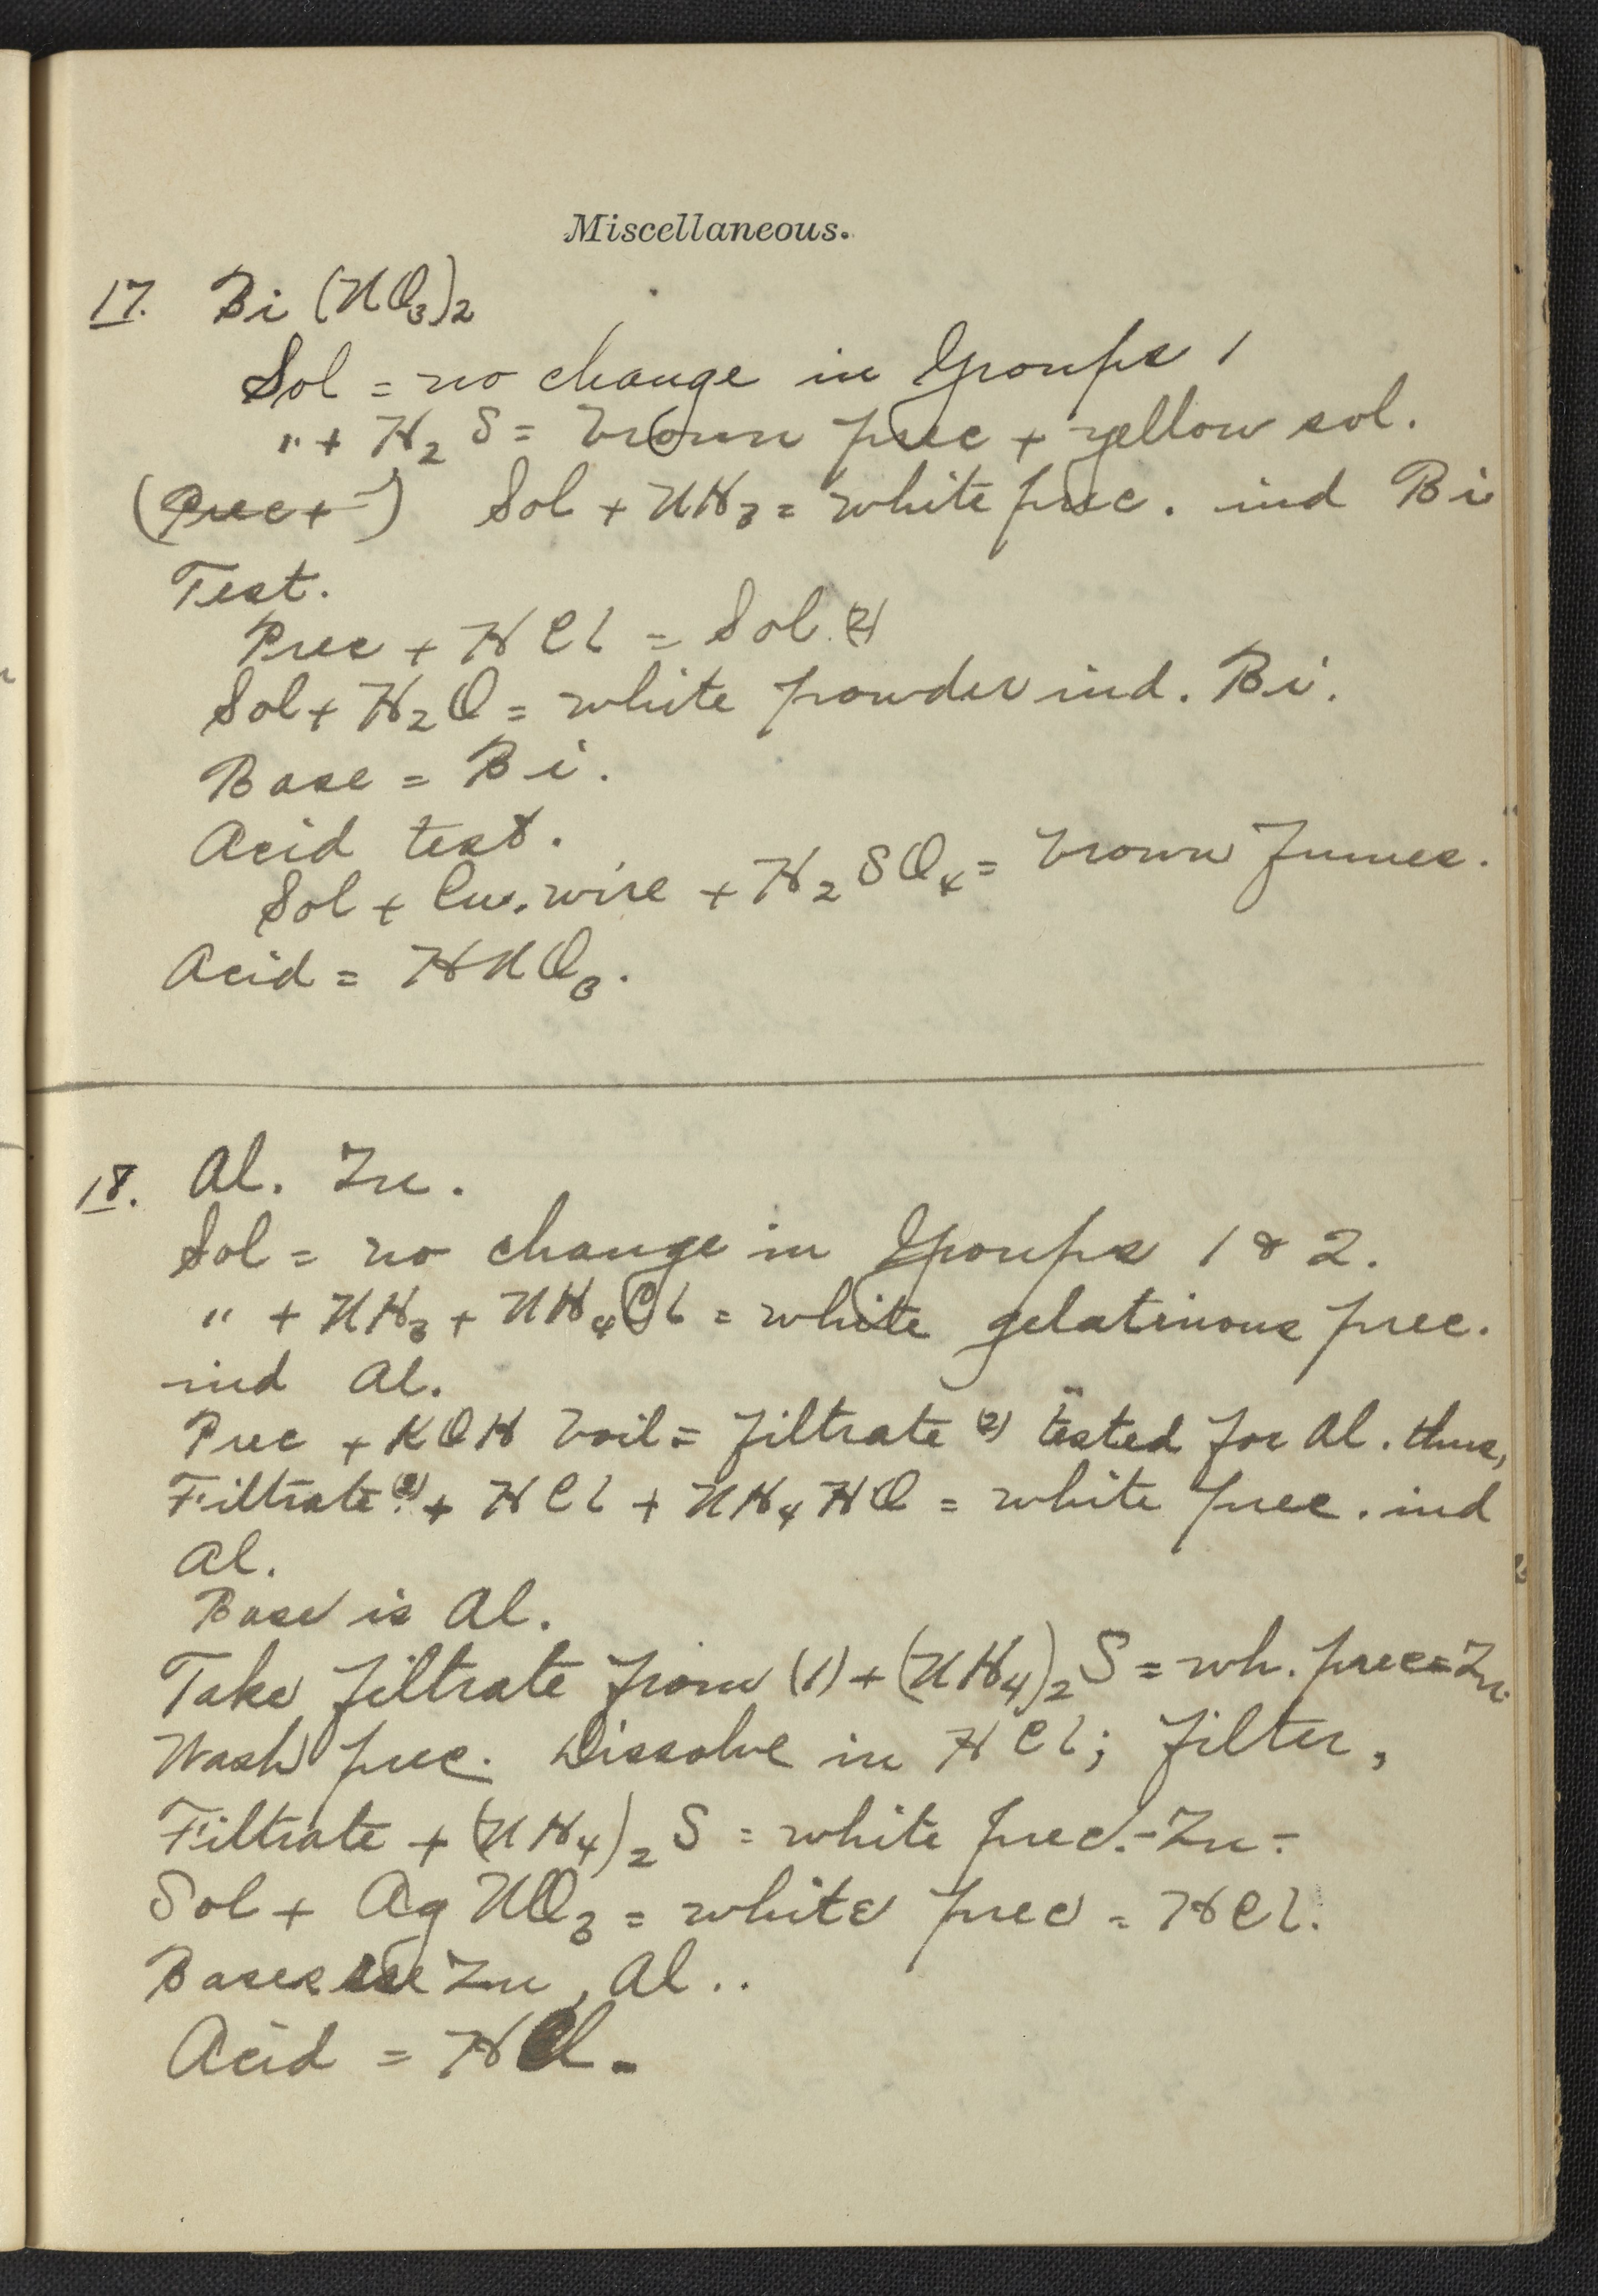 Miscellaneous.
17. Bi (NO3)2
Sol = no change in Groups 1
" + H2 S = brown prec + yellow sol.
(Prec + ) Sol + NH3 = white prec. ind Bi
Test.
Prec + HCl = Sol. (2)
Sol + H2O = white powder ind. Bi.
Base = Bi.
Acid test.
Sol + Cu. wire + H2SO4 = brown fumes.
Acid = HNO3.
18. Al. Zn.
Sol = no change in Groups 1 & 2.
" + NH3 + NH4Cl = white gelatinous prec.
ind Al.
Prec + KOH boil = filtrate (2) tested for Al. thus,
Filtrate (2) + HCl + NH4HO = white prec. ind
Al.
Base is Al.
Take filtrate from (1) + (NH4)2S = wh. prec = Zn.
Wash prec. Dissolve in HCl; filter,
Filtrate + (NH4)2S = white prec. - Zn -
Sol + AgNO3 = white prec = HCl.
Bases Zn, Al..
Acid = HCl.